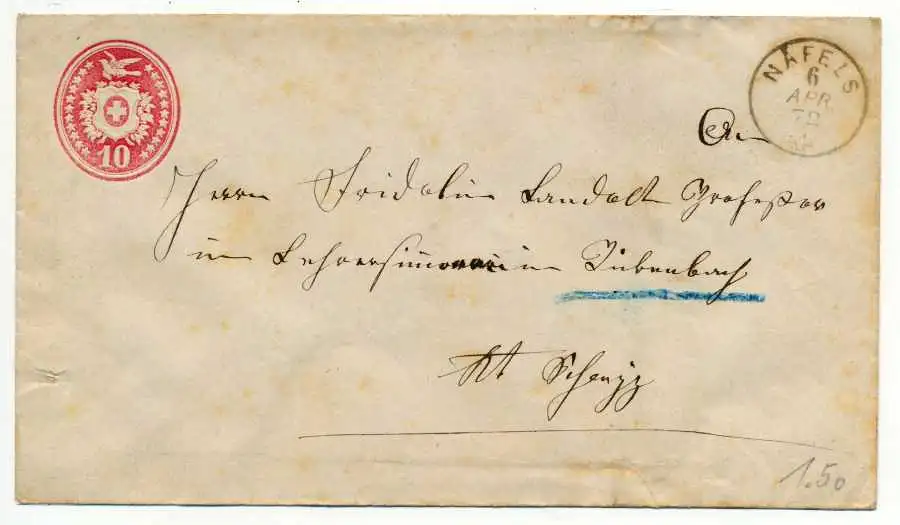 10
NÄFELS
6
APR
72
An
Herrn Fridolin Landolt Profeßor
im Lehrerseminarium Rickenbach
Kt Schwyz
1.50